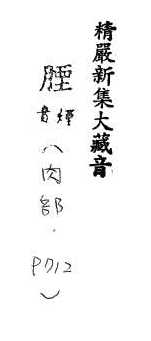 精嚴新集大藏音
腄音煙(肉部.P712)